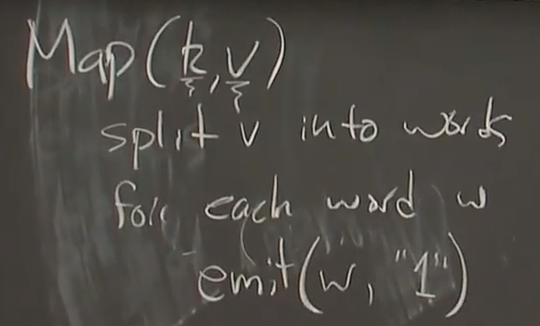 Map(k,v)
split v into words
for each word w
emit(w, "1")